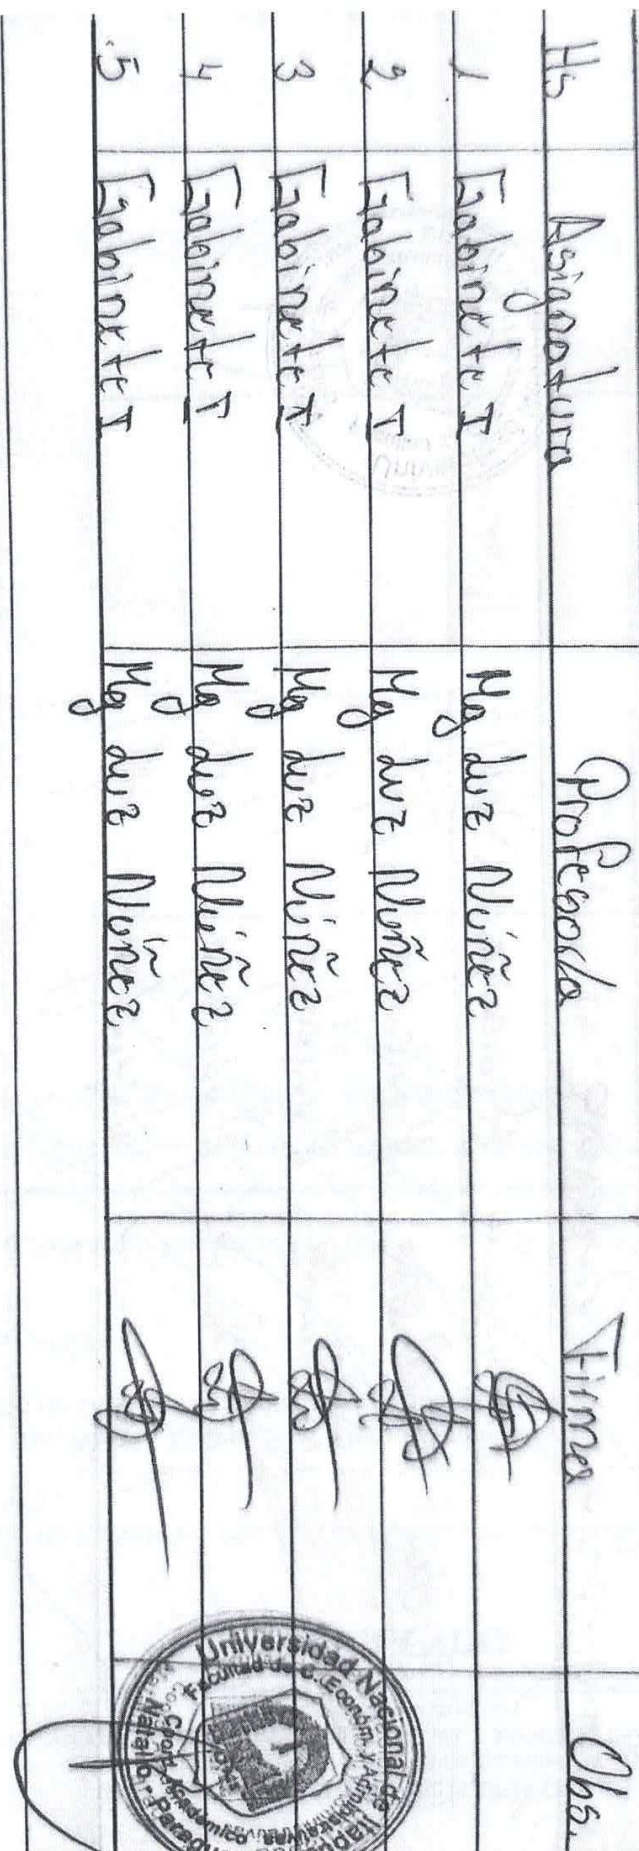 Hs Asignatura Profesor/a Firma Obs.
1 Gabinete I Mg Luz Núñez
2 Gabinete I Mg Luz Núñez
3 Gabinete I Mg Luz Núñez
4 Gabinete I Mg Luz Núñez
5 Gabinete I Mg Luz Núñez
Universidad Nacional de Itapúa
Facultad de C. Económ. y Administrat
Coord. Académico
Natalio - Paraguay